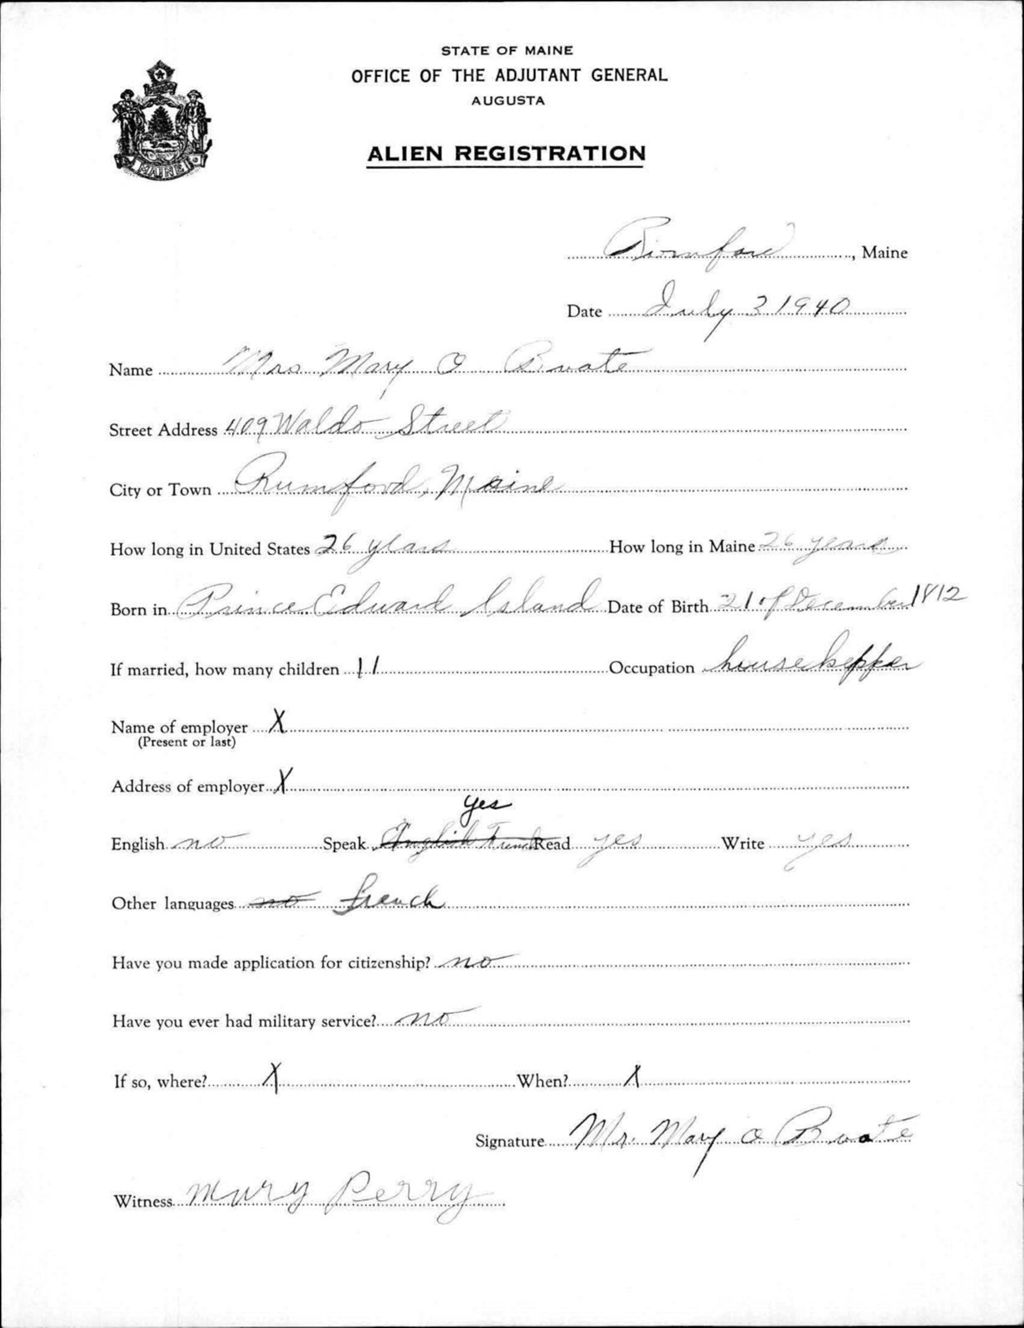 STATE OF MAINE
OFFICE OF THE ADJUTANT GENERAL
AUGUSTA
ALIEN REGISTRATION
MAINE
Rumford, Maine
Date July 3 1940
Name Mrs Mary O Buote
Street Address 409 Waldo Street
City or Town Rumford, Maine
How long in United States 26 years How long in Maine 26 years
Born in Prince Edward Island Date of Birth 21 of December 1812
If married, how many children 11 Occupation housekepper
Name of employer X
(Present or last)
Address of employer X
yes
English no Speak English French Read yes Write yes
Other languages no french
Have you made application for citizenship? no
Have you ever had military service? no
If so, where? X When? X
Signature Mr. Mary O Buote
Witness Mary Perry